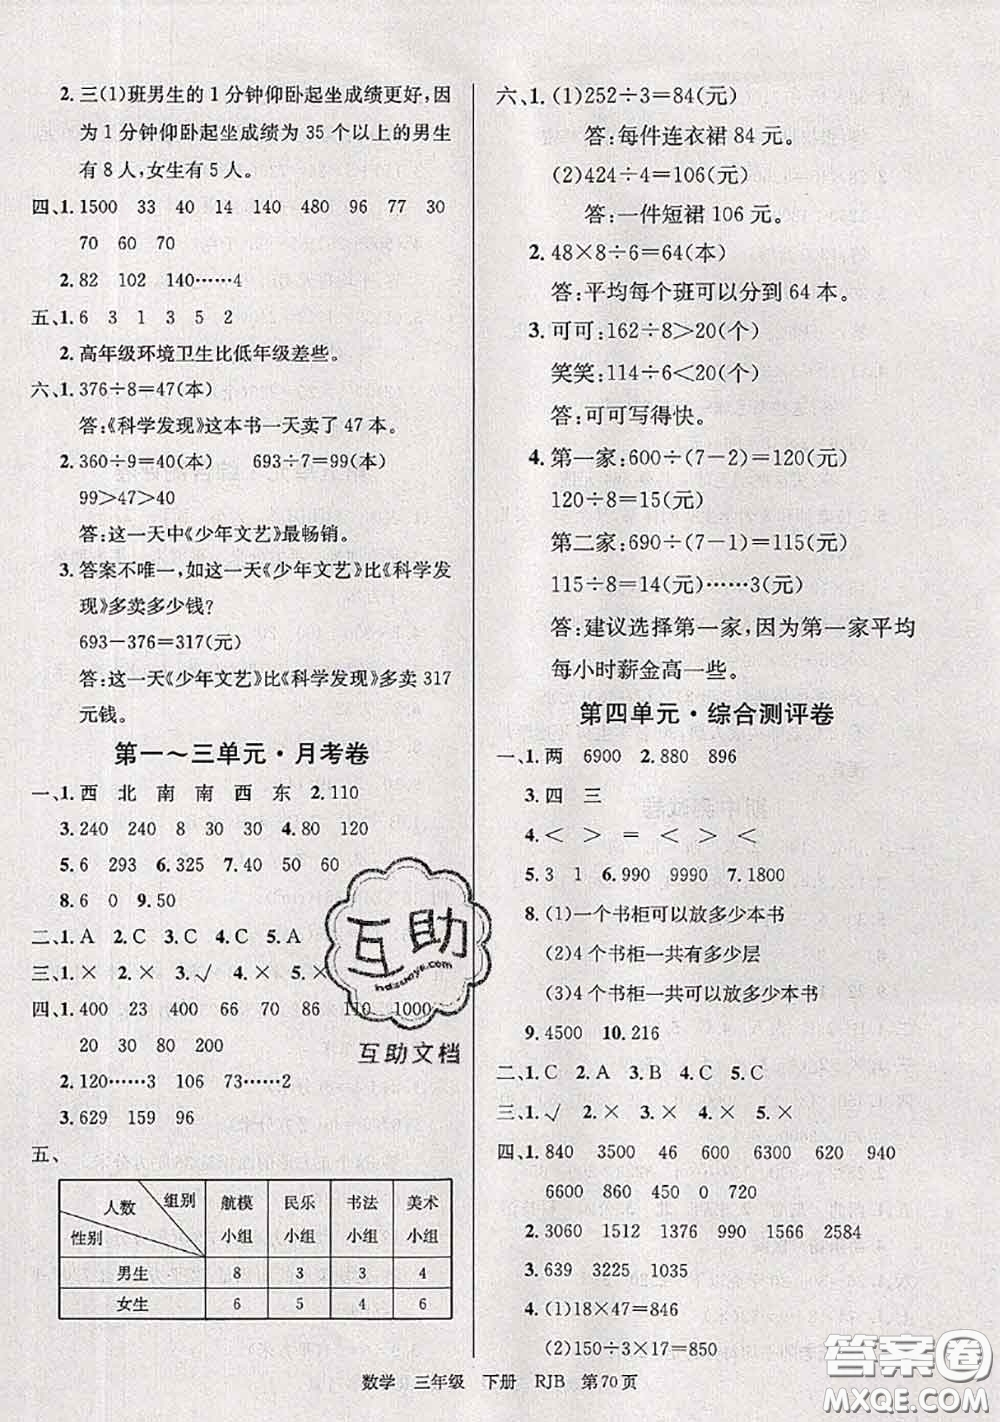 2. 三(1)班男生的1分钟仰卧起坐成绩更好,因
为1分钟仰卧起坐成绩为35个以上的男生
有8人,女生有5人。
四、1. 1500 33 40 14 140 480 96 77 30
70 60 70
2. 82 102 140……4
五、1. 6 3 1 3 5 2
2. 高年级环境卫生比低年级差些。
六、1. 376÷8=47(本)
答:《科学发现》这本书一天卖了47本。
2. 360÷9=40(本) 693÷7=99(本)
99>47>40
答:这一天中《少年文艺》最畅销。
3. 答案不唯一,如这一天《少年文艺》比《科学发
现》多卖多少钱?
693-376=317(元)
答:这一天《少年文艺》比《科学发现》多卖317
元钱。
第一~三单元·月考卷
一、1. 西 北 南 南 西 东 2. 110
3. 240 240 8 30 30 4. 80 120
5. 6 293 6. 325 7. 50 50 150
8. 6 0 9. 50
二、1. A 2. C 3. C 4. C 5. A
三、1. × 2. × 3. √ 4. × 5. ×
四、1. 400 23 400 66 70 86 110 1000
20 30 80 200
2. 120……3 106 73……2
3. 629 159 96
五、
人数 组别 性别 航模小组 民乐小组 书法小组 美术小组
男生 8 3 3 4
女生 6 5 4 6
六、1. (1)252÷3=84(元)
答:每件连衣裙84元。
(2)424÷4=106(元)
答:一件短裙106元。
2. 48×8÷6=64(本)
答:平均每个班可以分到64本。
3. 可可:162÷8>20(个)
笑笑:114÷6<20(个)
答:可可写得快。
4. 第一家:600÷(7-2)=120(元)
120÷8=15(元)
第二家:690÷(7-1)=115(元)
115÷8=14(元)……3(元)
答:建议选择第一家,因为第一家平均
每小时薪金高一些。
第四单元·综合测评卷
一、1. 两 6900 2. 880 896
3. 四 三
4. < > = < > <
5. 3 1 6. 990 9990 7. 1800
8. (1)一个书柜可以放多少本书
(2)4个书柜一共有多少层
(3)4个书柜一共可以放多少本书
9. 4500 10. 216
二、1. C 2. A 3. B 4. C 5. C
三、1. √ 2. × 3. × 4. × 5. ×
四、1. 840 3500 46 600 6300 620 940
6600 860 450
2. 3060 1512 1376 990 1566 2584
3. 639 3225 1035
4. (1)18×47=846
(2)150÷3×17=850
互助
hdzuoye.com
互助文档
答案圈
MXQE.COM
数学 三年级 下册 RJB 第70页